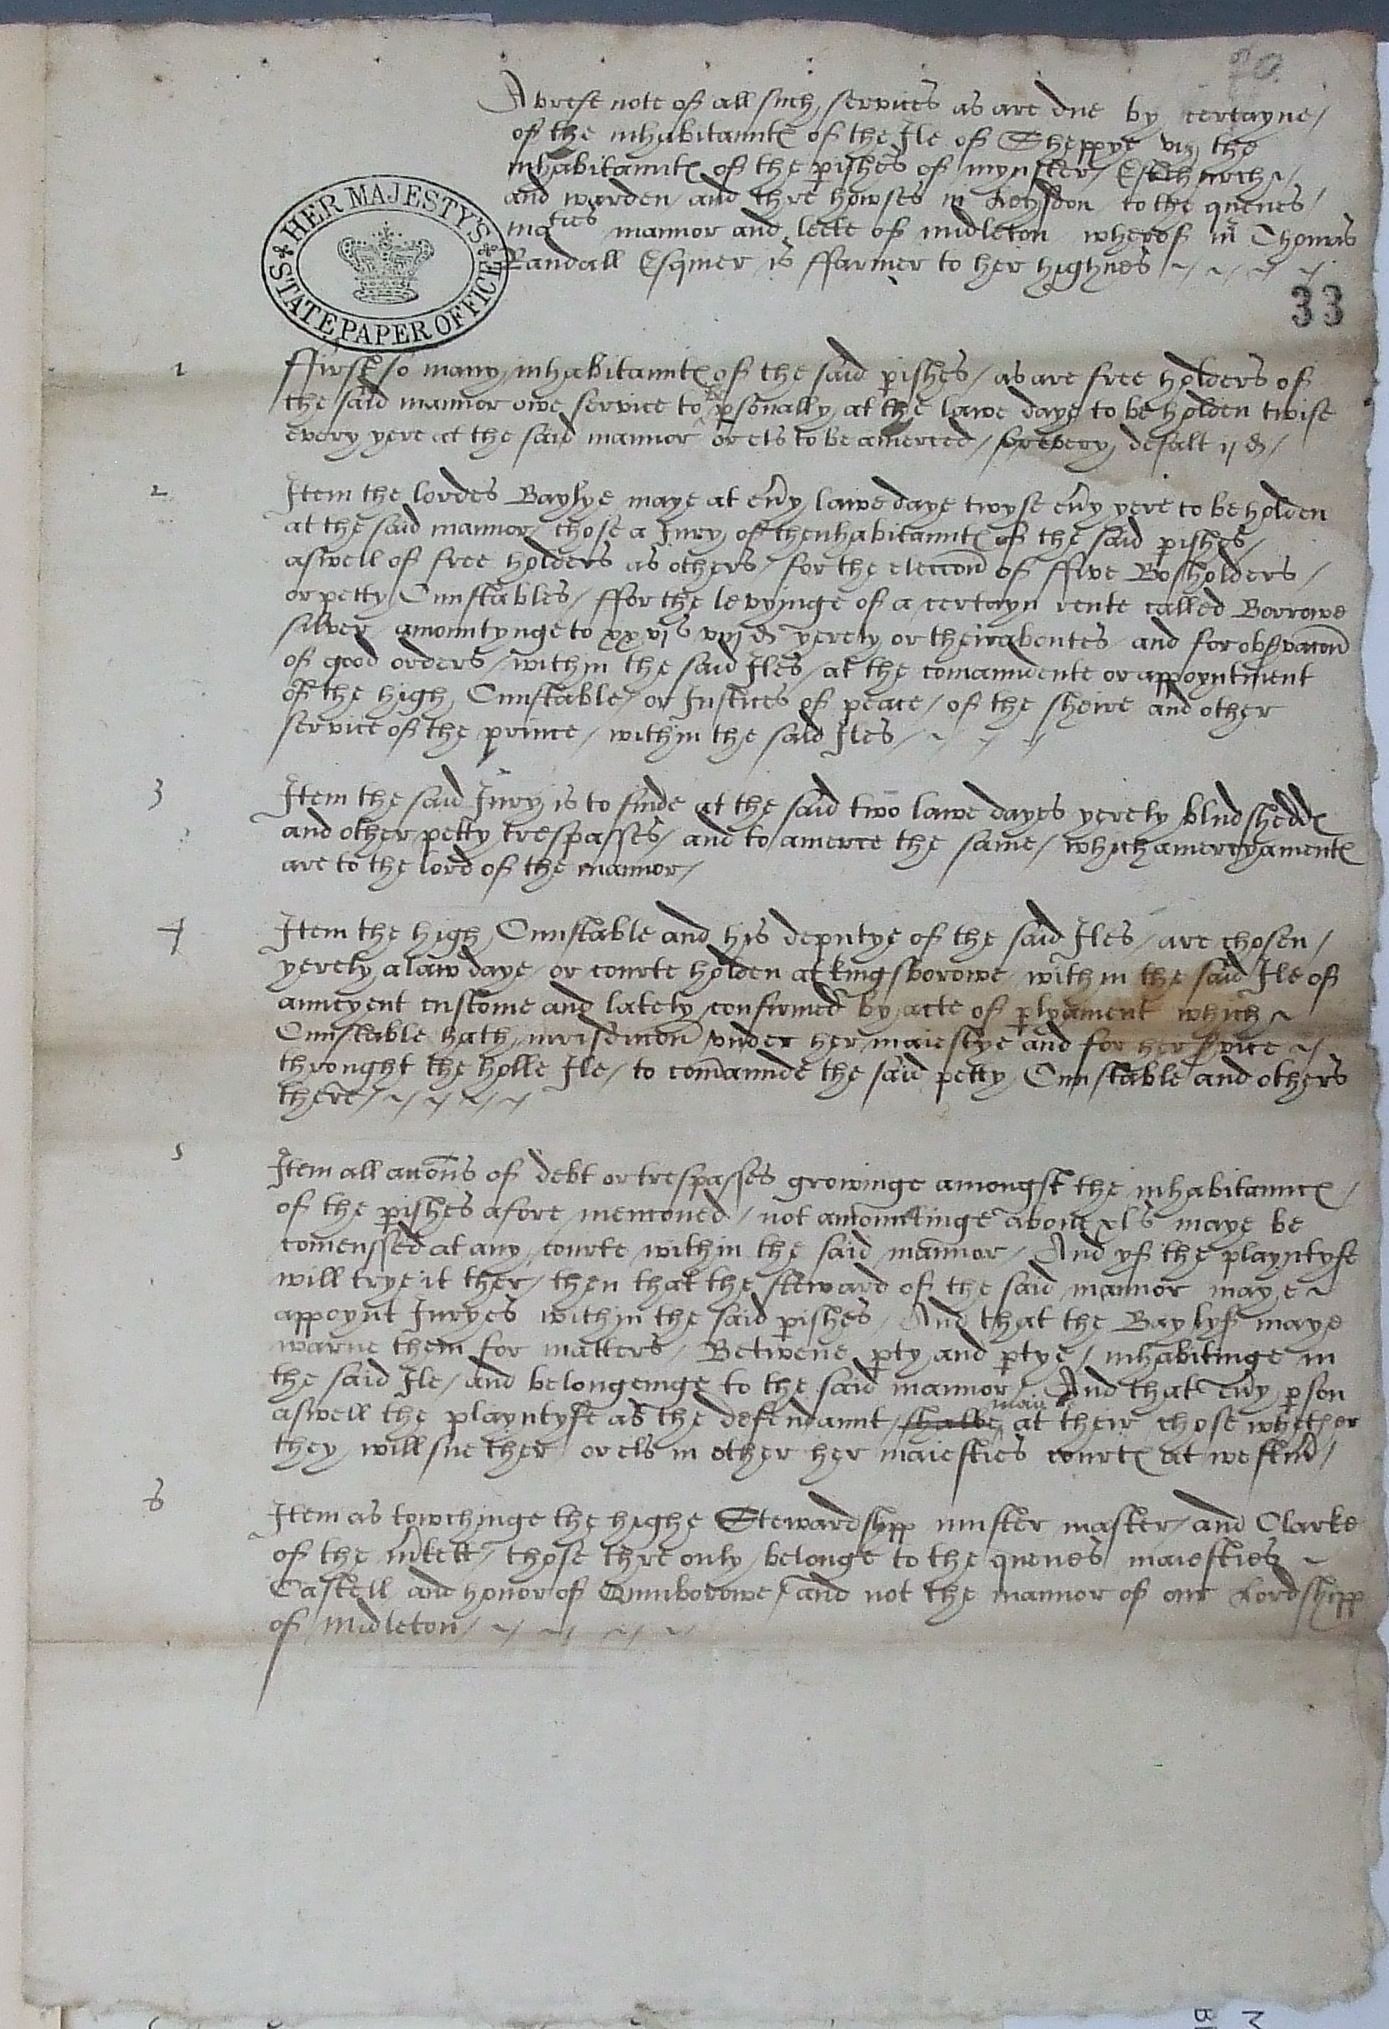 A brefe note of all such services as are due by certayne /
of the inhabitaunts of the Ile of Sheppye viz the
inhabitaunts of the pishes of mynster / Estchurch ~
and warden / and thre howses in Leysdon to the quenes /
maties mannor and leete of midleton wherof mr Thomas
Randall Esquier is ffarmer to her highnes
HER MAJESTY'S STATE PAPER OFFICE
33
1 ffirst so many inhabitaunts of the said pishes / as are free holders of
the said mannor owe service to be psonally at the lawe daye to be holden twise
every yere at the said mannor or els to be amerced / for every defalt ij d /
2 Item the lordes Baylye maye at eny lawe daye twyse eny yere to be holden
at the said mannor / chose a Jury of thenhabitaunts of the said pishes /
aswell of free holders as others / for the eleccon of ffive Bosholders /
or petty Cunstables / ffor the levyinge of a certayn rente called Borrowe
silver / amountynge to xxvjs viij d yerely or theiraboutes / and for obsvacon
of good orders / within the said Iles / at the comaundente or appoyntment
of the high Cunstable / or Justices of peace / of the sheire and other
service of the prince / within the said Iles /
3 Item the said Jury is to finde at the said two lawe dayes yerely bludshedds
and other petty trespasses / and to amerce the same / which amercyaments
are to the lord of the mannor /
4 Item the high Cunstable and his deputye of the said Iles / are chosen /
yerely a law daye / or courte holden at kingsborowe / within the said Ile of
auncyent custome and lately confirmed by acte of plyament which ~
Cunstable hath jurisdiccon under her maiestye and for her svice ~
throught the holle Ile / to comaunde the said petty Cunstable and others
there /
5 Item all accons of debt or trespasses growinge amongst the inhabitaunts /
of the pishes afore menconed / not amounttinge above xls maye be
comenssed at any courte within the said mannor / And yf the playntyfe
will trye it ther / then that the steward of the said mannor maye ~
appoynt Juryes within the said pishes / And that the Baylyf maye
warne them for matters / Betwene pty and ptye / inhabitinge in
the said Ile / and belongeinge to the said mannor / And that eny pson
aswell the playntyfe as the defendaunt / shalbe maye at their chose whether
they will sue ther or els in other her maiesties courts at westm /
6 Item as towchinge the highe Stewardshypp muster master / and Clarke
of the mkett / those thre only belonge to the quenes maiesties ~
Castell and honor of Quinborowe / and not the mannor of our Lordshipp
of midleton /